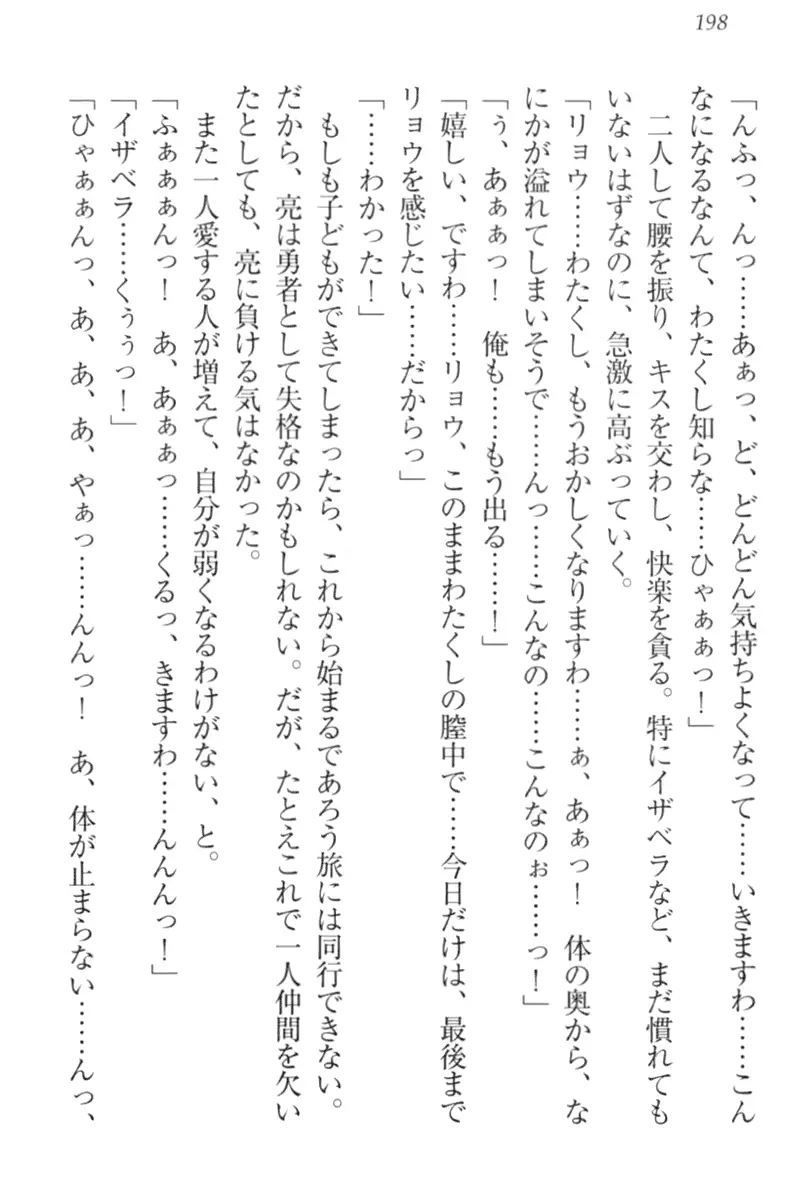 198
「んふっ、んっ……あぁっ、ど、どんどん気持ちよくなって……いきますわ……こん
なになるなんて、わたくし知らな……ひゃぁぁっ！」
　二人して腰を振り、キスを交わし、快楽を貪る。特にイザベラなど、まだ慣れても
いないはずなのに、急激に高ぶっていく。
「リョウ……わたくし、もうおかしくなりますわ……ぁ、あぁっ！　体の奥から、な
にかが溢れてしまいそうで……んっ……こんなの……こんなのぉ……っ！」
「ぅ、あぁぁっ！　俺も……もう出る……！」
「嬉しい、ですわ……リョウ、このままわたくしの膣中で……今日だけは、最後まで
リョウを感じたい……だからっ」
「……わかった！」
　もしも子どもができてしまったら、これから始まるであろう旅には同行できない。
だから、亮は勇者として失格なのかもしれない。だが、たとえこれで一人仲間を欠い
たとしても、亮に負ける気はなかった。
　また一人愛する人が増えて、自分が弱くなるわけがない、と。
「ふぁぁぁんっ！　あ、あぁぁっ……くるっ、きますわ……んんんっ！」
「イザベラ……くぅぅっ！」
「ひゃぁぁんっ、あ、あ、あ、やぁっ……んんっ！　あ、体が止まらない……んっ、